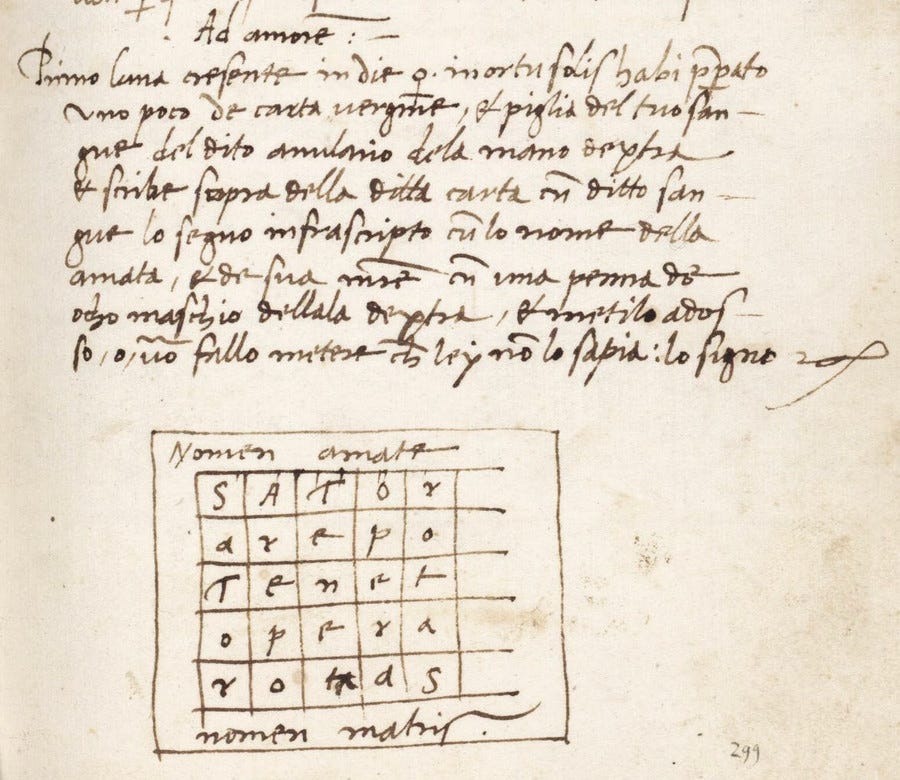 Ad amorē :—
Primo luna cresente in die ♀. in ortu solis habi pparato
uno poco de carta vergine, & piglia del tuo san-
gue del dito anulario dela mano dextra
& scribe sopra della ditta carta cū ditto san-
gue lo segno infrascripto cū lo nome della
amata, & de sua mr̄e cū una penna de
ocho maschio dell ala dextra, & metilo ados-
so, o, vō fallo metere ch ley nō lo sapia: lo signo
Nomen amate
S A T O r
a r e p o
T e n e t
o p e r a
r o t a S
nomen matris.
299